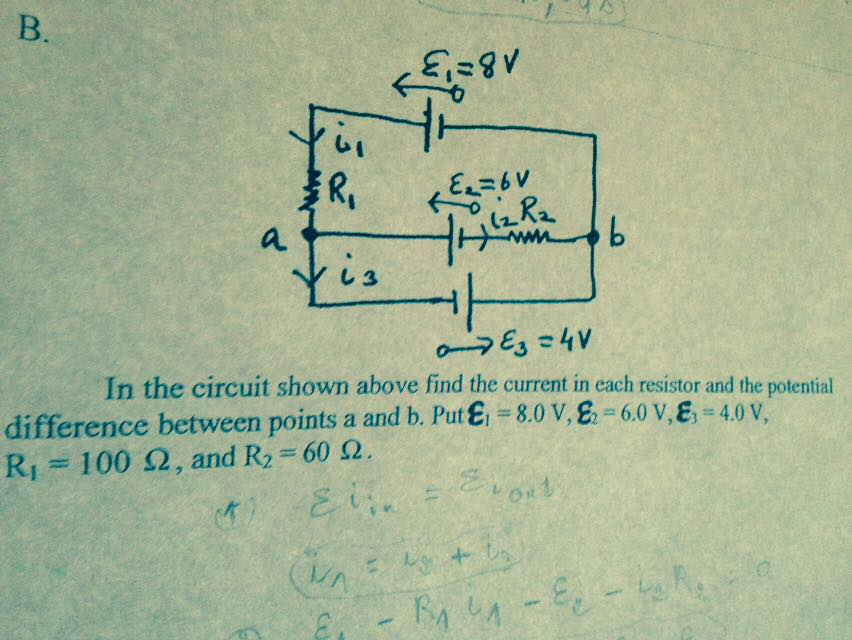 B.
ℰ₁=8V
i₁
R₁
ℰ₂=6V
i₂ R₂
a
b
i₃
ℰ₃=4V
In the circuit shown above find the current in each resistor and the potential
difference between points a and b. Put ℰ₁ = 8.0 V, ℰ₂ = 6.0 V, ℰ₃ = 4.0 V,
R₁ = 100 Ω, and R₂ = 60 Ω.
Σ i in = Σ i out